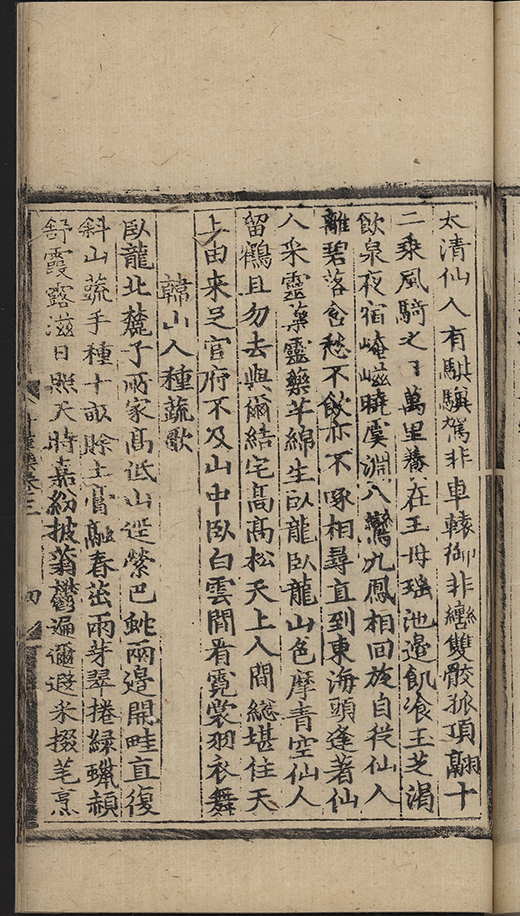 太清仙人有騏驥駕非車轅御非轡雙骹孤項翮十
二乘風騎之了萬里暮在王母瑤池邊飢飡玉芝渴
飲泉夜宿崦嵫曉虞淵八鸞九鳳相回旋自從仙人
離碧落含愁不飲亦不啄相尋直到東海頭逢著仙
人采靈藥靈藥芊綿生臥龍臥龍山色摩青空仙人
留鶴且勿去與爾結宅高高松天上人間總堪住天
上由來足官府不及山中臥白雲間看霓裳羽衣舞
韓山人種蔬歌
臥龍北麓子兩家高低山逕縈巴虵兩邊開畦直復
斜山蔬手種十畝賖土膏融春茁雨芽翠捲綠蠟赬
舒霞露滋日照天時嘉紛披蓊鬱遍邇遐采掇芼烹
卷三
四